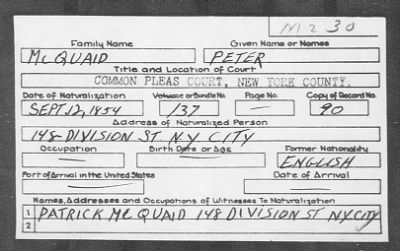 M 230
Family Name Given Name or Names
McQUAID PETER
Title and Location of Court
COMMON PLEAS COURT, NEW YORK COUNTY
Date of Naturalization Volume or Bundle No. Page No. Copy of Record No.
SEPT 12, 1854 137 — 90
Address of Naturalized Person
148 DIVISION ST N.Y. CITY
Occupation Birth Date or Age Former Nationality
— — ENGLISH
Port of Arrival in the United States Date of Arrival
— —
Names, Addresses and Occupations of Witnesses To Naturalization
1 PATRICK McQUAID 148 DIVISION ST NY CITY
2